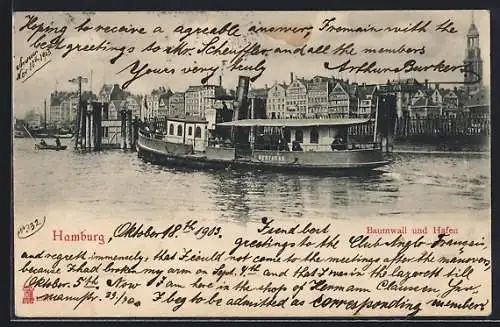 Hoping to receive a agreable answer, I remain with the
best greetings to Mr. Scheuffler and all the members
Yours very truly
Arthur Burker
answer
Nov 10th 1903
No 232
Hamburg
Baumwall und Hafen
Oktober 18.th 1903.
I send best
greetings to the Club Anglo-Français,
and regrett immensely, that I could not come to the meetings after the manover,
because I had broken my arm on Sept. 4th and that I was in the lazarett till
Oktober 5.th Now I am here in the shop of Hermann Clausen, Gra,
I beg to be admitted as corresponding member